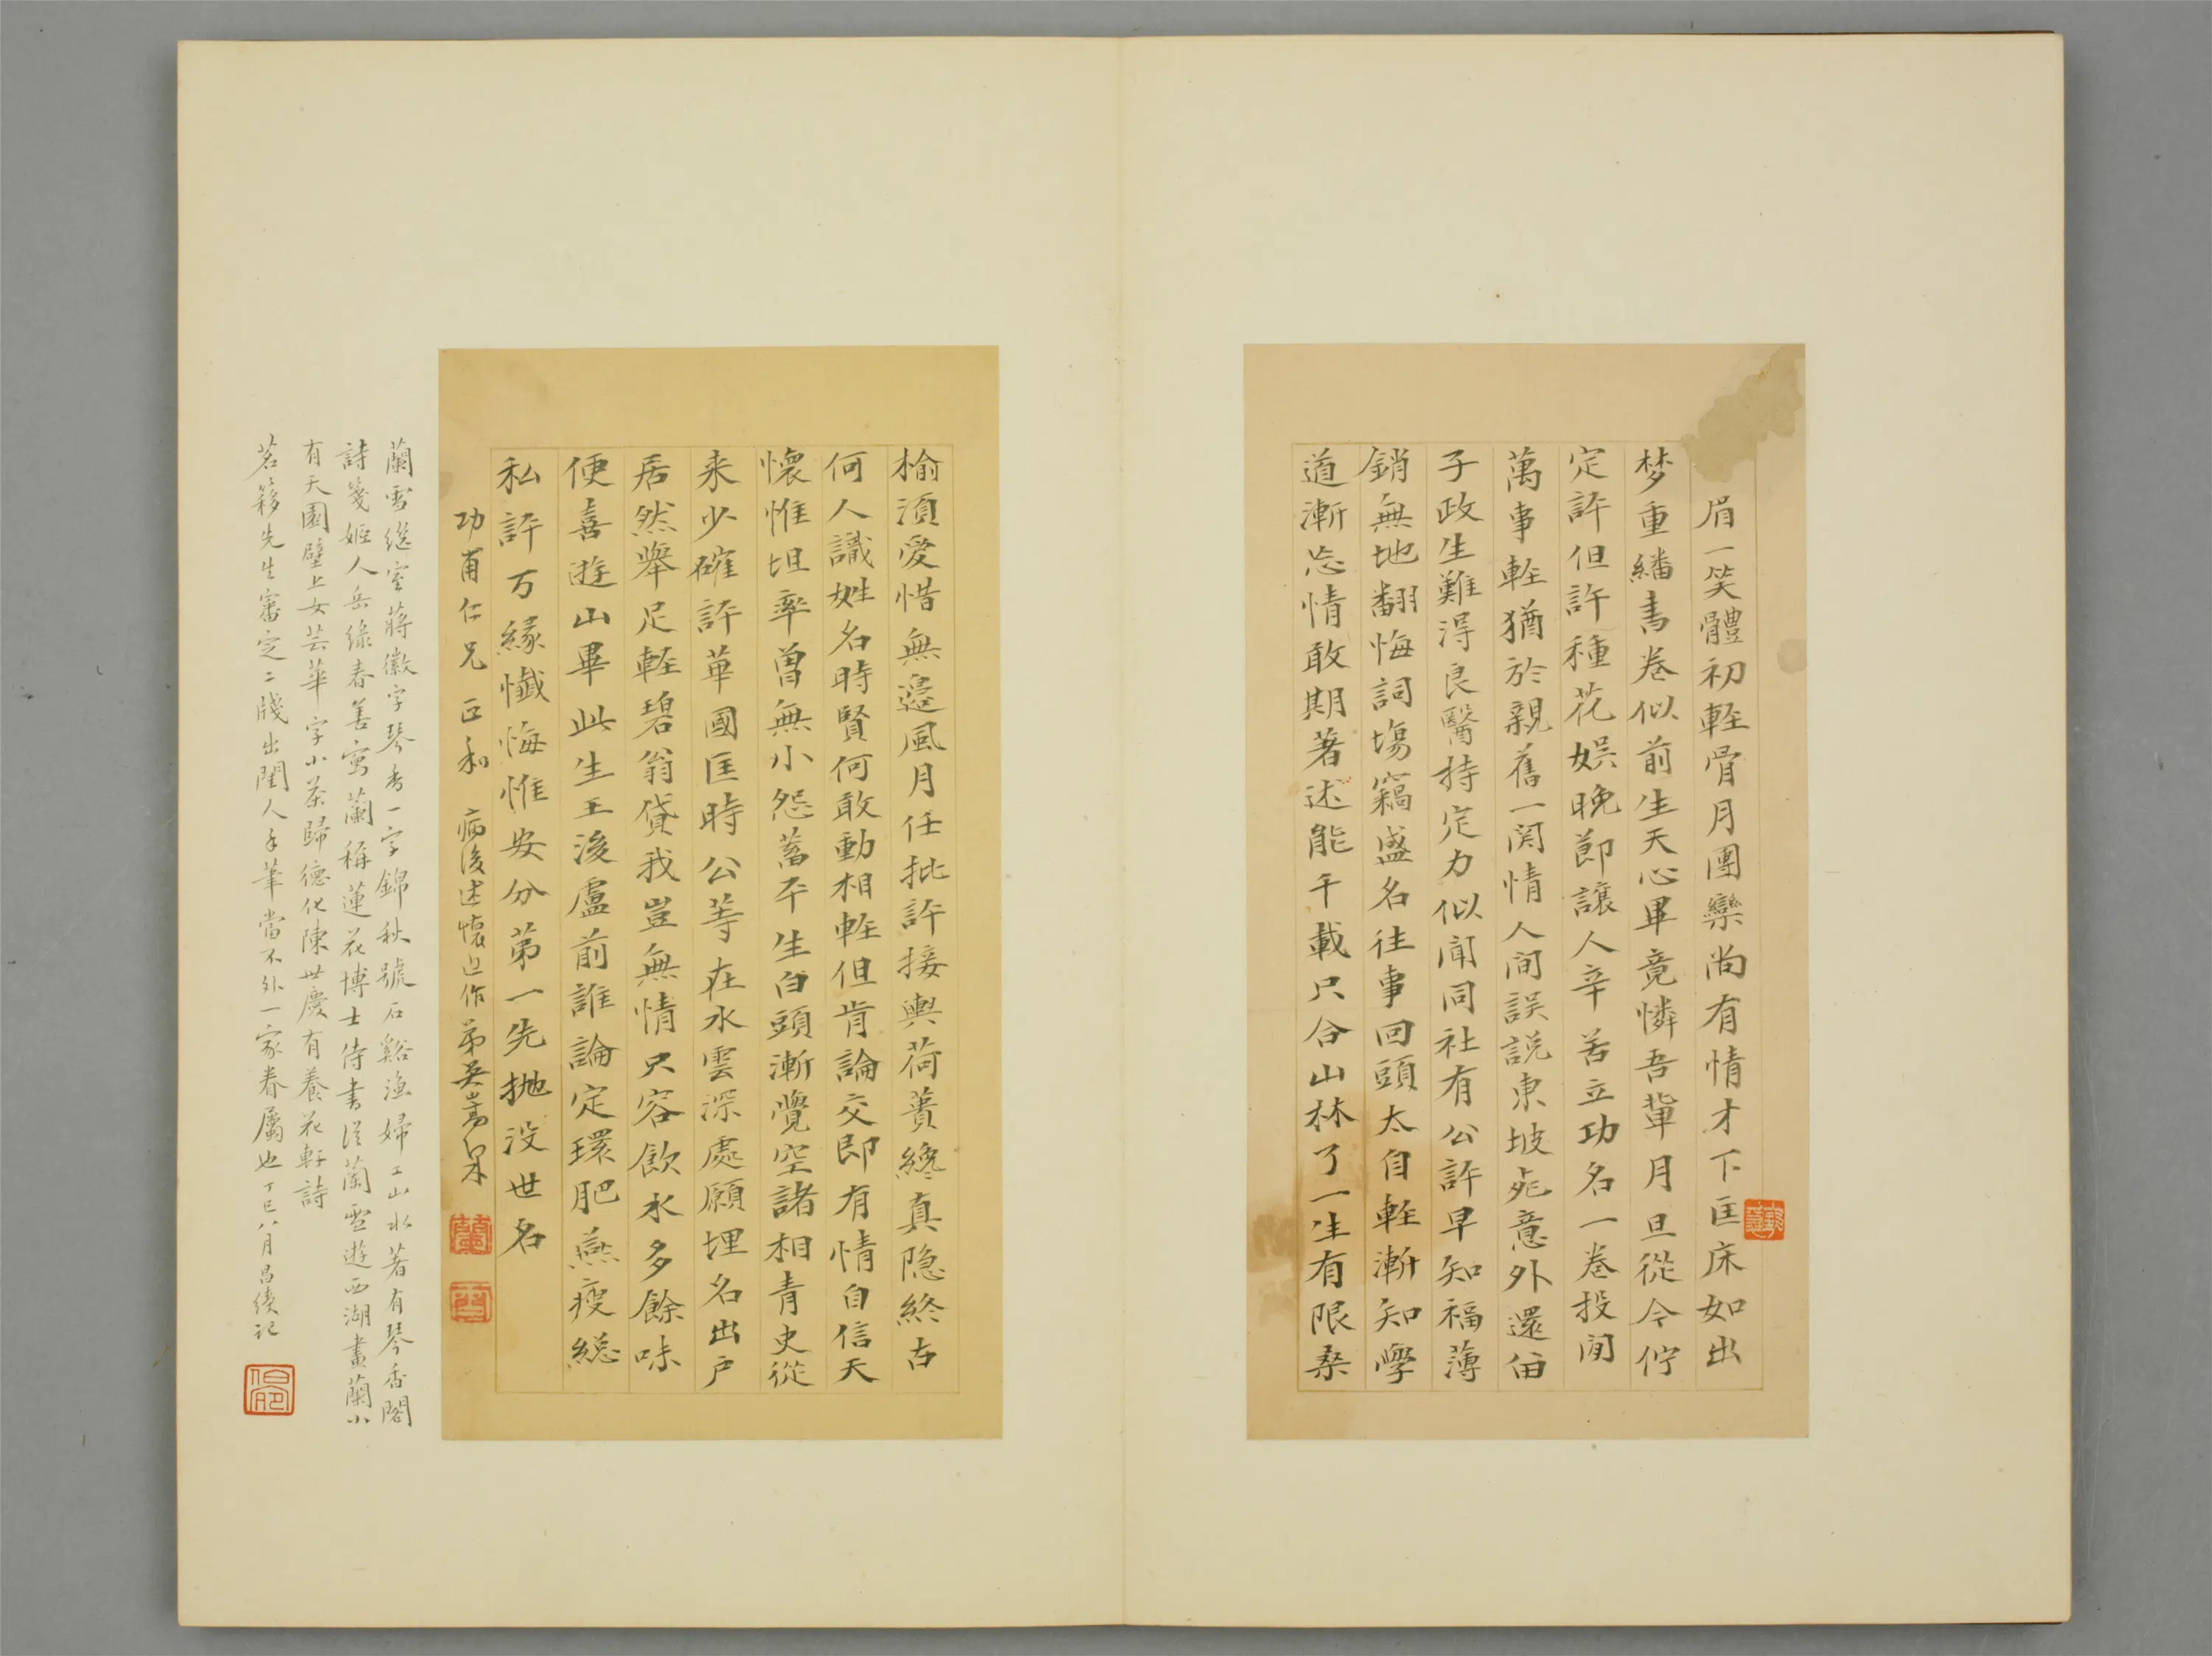 眉一笑體初輕骨月團欒尚有情才下匡床如出
梦重繙書卷似前生天心畢竟憐吾輩月旦從今佇
定許但許種花娱晚節讓人辛苦立功名一卷投閒
萬事輕猶於親舊一関情人间誤説東坡死意外還留
子政生難淂良醫持定力似聞同社有公許早知福薄
銷無地翻悔詞塲竊盛名往事回頭太自輕漸知學
道漸忘情敢期著述能千載只合山林了一生有限桑
榆須愛惜無邊風月任批許接輿荷蕢纔真隐終古
何人識姓名時賢何敢動相輕但肯論交即有情自信天
懷惟坦率曽無小怨蓄平生白頭漸覺空諸相青史從
来少確許華國匡時公等在水雲深處願埋名出户
居然舉足輕碧翁貸我豈無情只容飲水多餘味
便喜遊山畢此生王後盧前誰論定環肥燕瘦総
私許万緣懺悔惟安分第一先抛没世名
功甫仁兄正和 病後述懷近作弟吴嵩梁
蘭雪繼室蔣徽字琴香一字錦秋號石谿漁婦工山水著有琴香閣
詩箋姬人岳綠春善寫蘭稱蓮花博士侍書從蘭雪遊西湖畫蘭小
有天園壁上女芸華字小茶歸德化陳世慶有養花軒詩
茗簃先生審定二牋出閨人手筆當不外一家眷屬也丁巳八月昌綬記